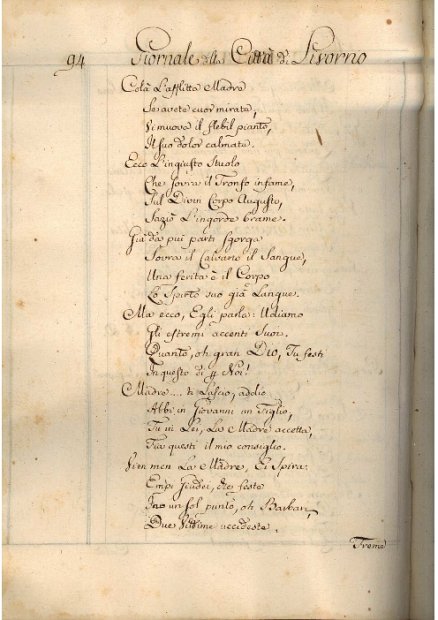 94 Giornale della Città di Livorno
Colà L'afflitta Madre
Se avete cuor mirata,
Vi muova il flebil pianto,
Il suo dolor calmata.
Ecco L'ingiusto Stuolo
Che sovra il Tronfo infame,
Sul Divin Corpo Augusto,
Saziò L'ingorde brame.
Già da più parti sgorga
Sovra il Calvario il Sangue,
Una ferita è il Corpo
Lo Spirto suo già Langue.
Ma ecco, Egli parla: Udiamo
Gli estremi accenti Suoi.
Quanto, oh gran Dio, Tu festi
In questo dì Noi!
Madre.... ti Lascio, addio
Abbi in Giovanni un Figlio,
Tu in Lei, La Madre accetta,
Tra questi il mio consiglio.
Vien men La Madre, Ei Spira:
Empi Giudei, feste
In un sol punto, oh Barbari,
Due Vittime uccideste.
Treme